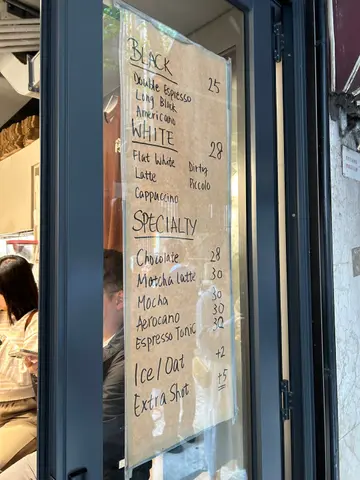 BLACK
Double Espresso 25
Long Black
Americano
WHITE 28
Flat White Dirty
Latte Piccolo
Cappuccino
SPECIALTY
Chocolate 28
Matcha Latte 30
Mocha 30
Aerocano 30
Espresso Tonic 32
Ice/Oat +2
Extra Shot +5